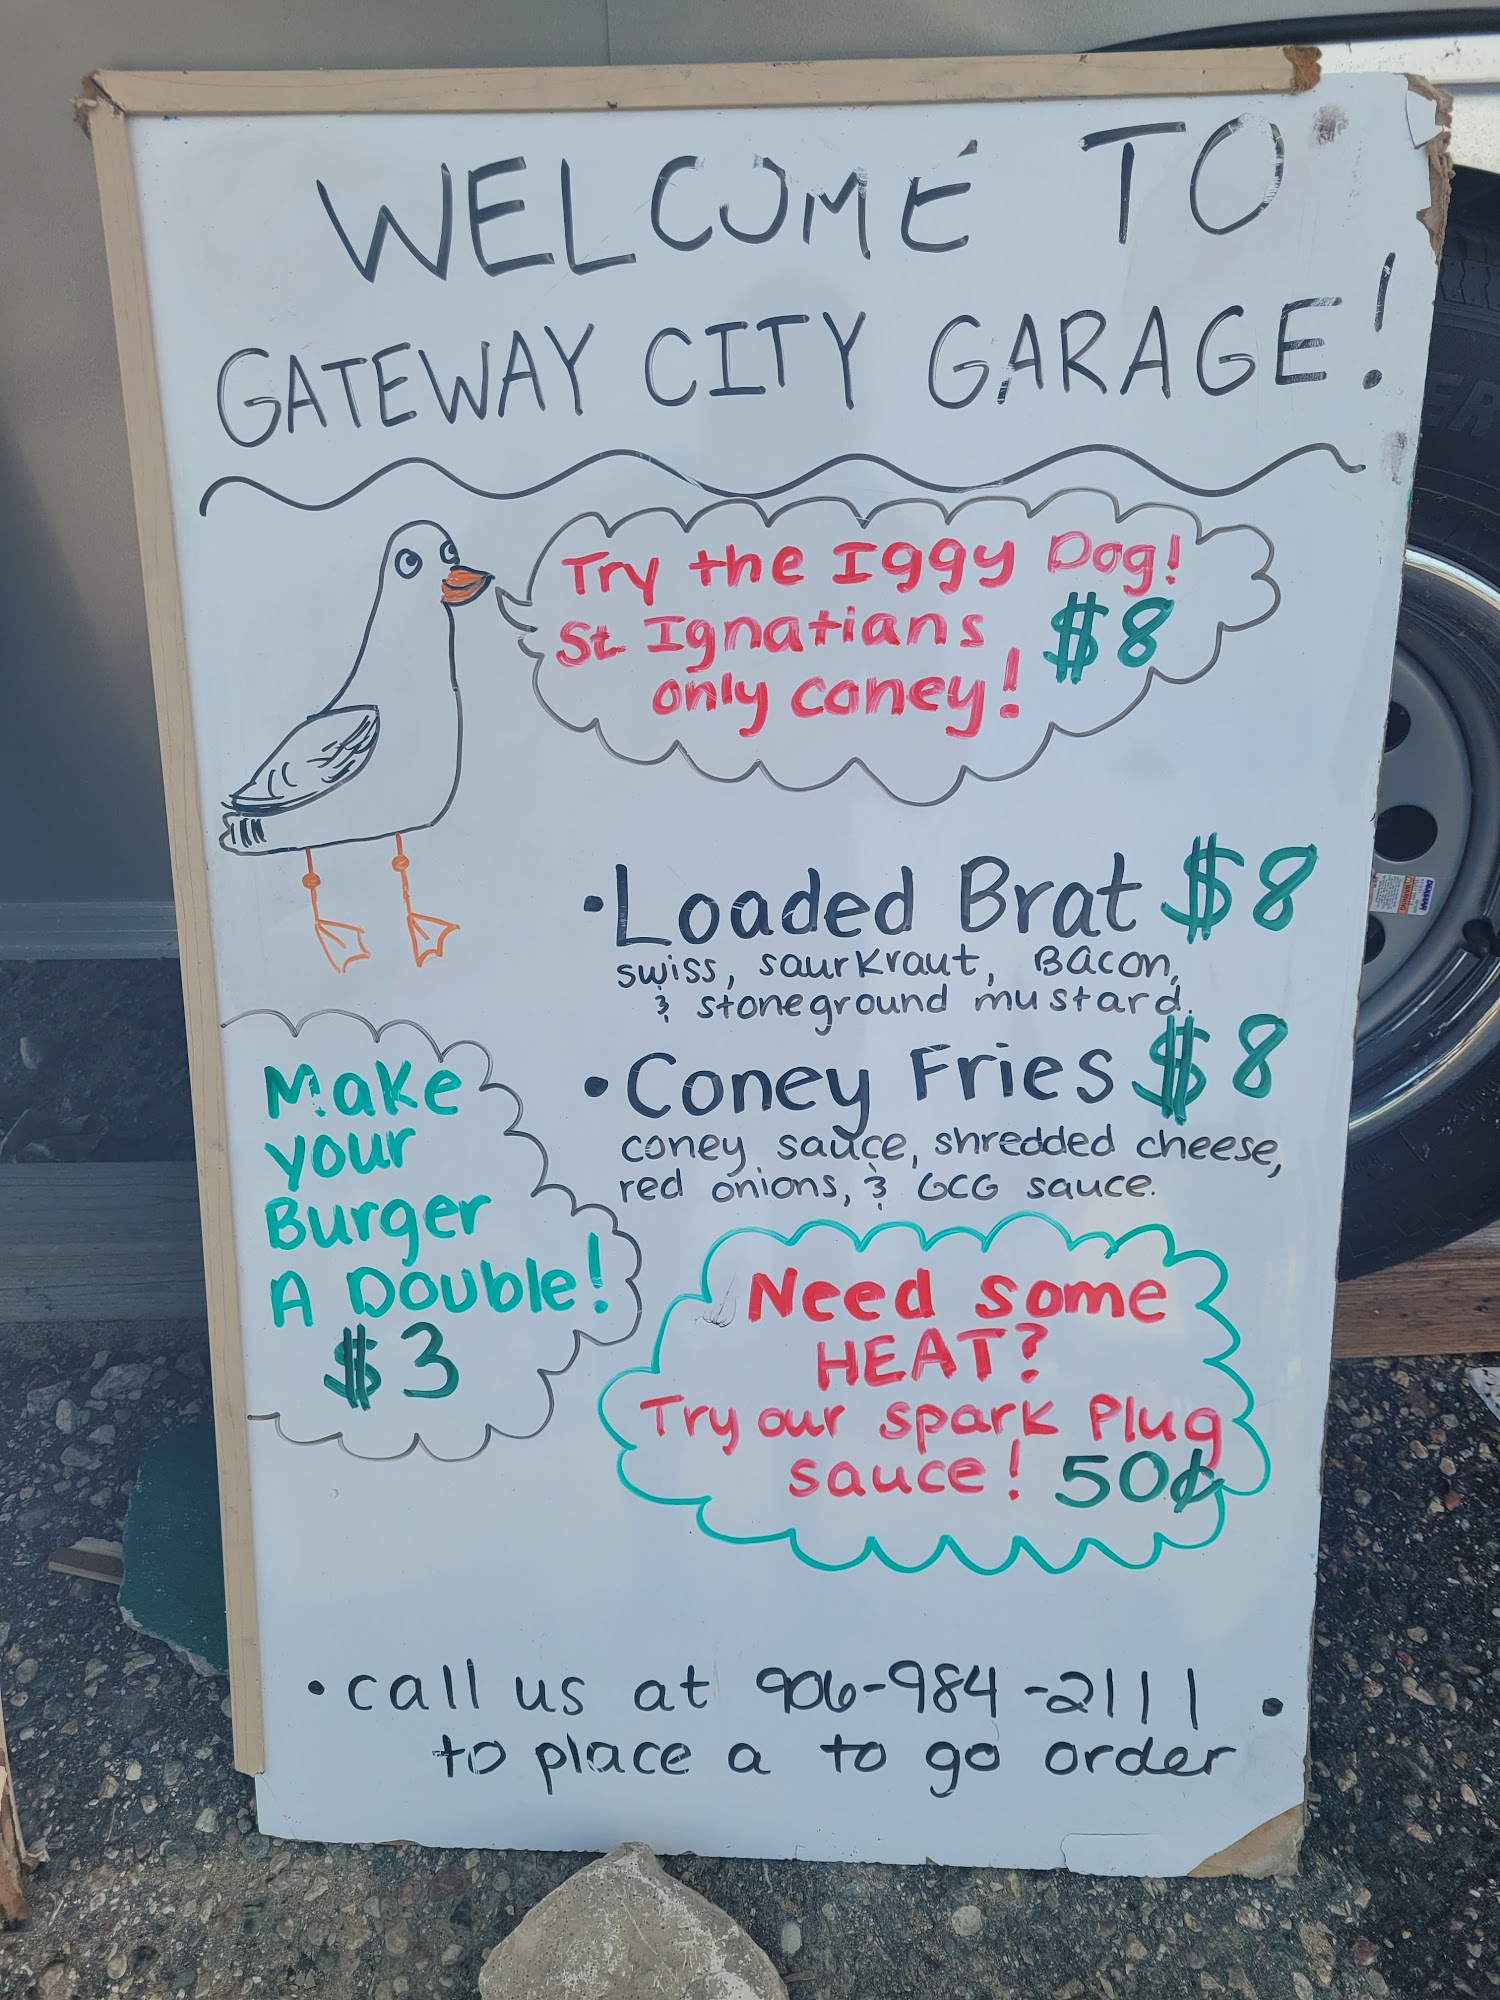 WELCOME TO
GATEWAY CITY GARAGE!
Try the Iggy Dog!
St Ignatians $8
only coney!
• Loaded Brat $8
swiss, saurkraut, Bacon,
& stoneground mustard.
• Coney Fries $8
coney sauce, shredded cheese,
red onions, & GCG sauce.
Make
your
Burger
A Double!
$3
Need some
HEAT?
Try our spark Plug
sauce! 50¢
• call us at 906-984-2111 •
to place a to go order